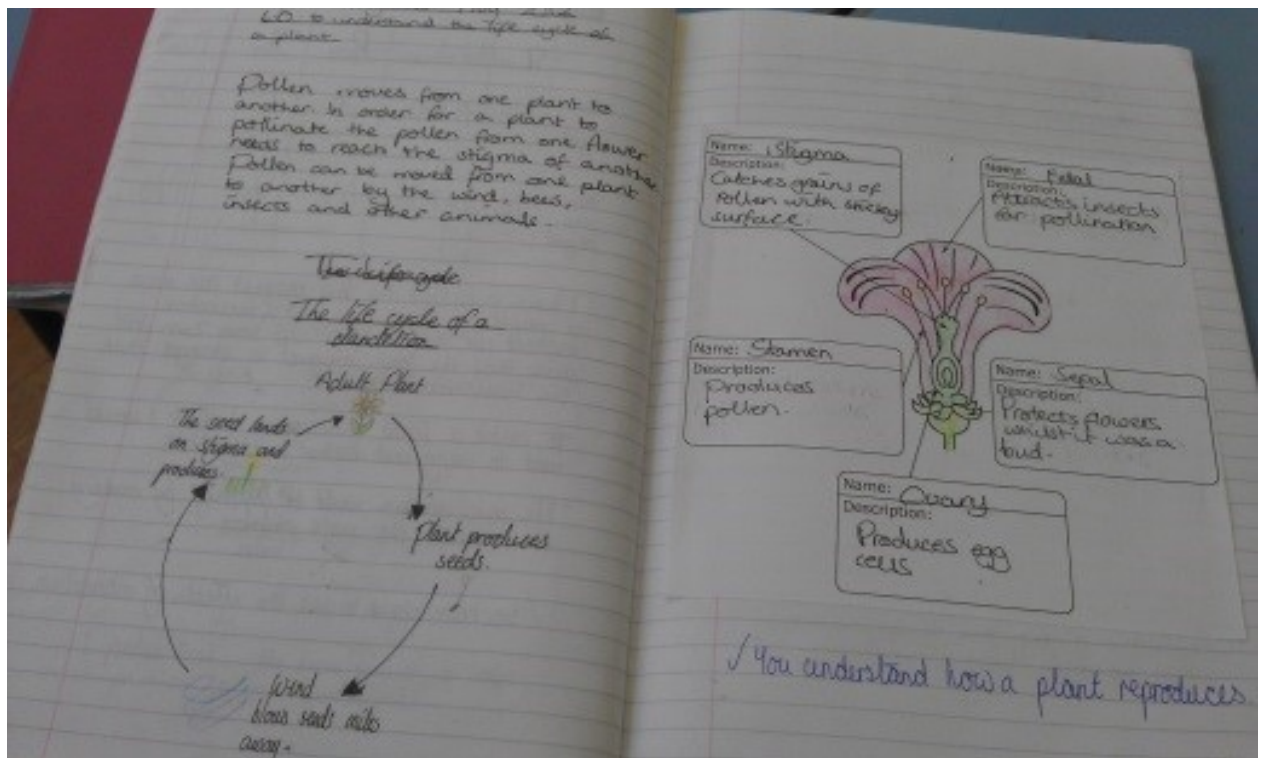 LO to understand the life cycle of
a plant.
Pollen moves from one plant to
another. In order for a plant to
pollinate the pollen from one flower
needs to reach the stigma of another
Pollen can be moved from one plant
to another by the wind, bees,
insects and other animals.
The life cycle of a
dandelion
Adult Plant
The seed lands
on stigma and
produces
Plant produces
seeds.
Wind
blows seeds miles
away.
Name: Stigma
Description:
Catches grains of
pollen with sticky
surface.
Name: Petal
Description:
Attracts insects
for pollination
Name: Stamen
Description:
Produces
pollen.
Name: Sepal
Description:
Protects flowers
whilst it was a
bud.
Name: Ovary
Description:
Produces egg
cells
✓ You understand how a plant reproduces